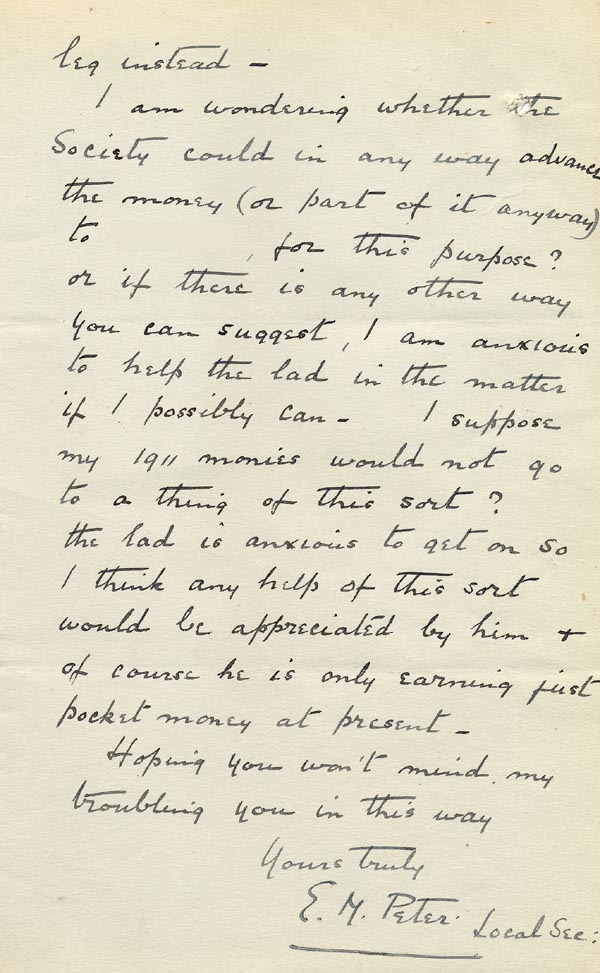 leg instead -
I am wondering whether the
Society could in any way advance
the money (or part of it anyway)
to , for this purpose?
or if there is any other way
you can suggest, I am anxious
to help the lad in the matter
if I possibly can - I suppose
my 1911 monies would not go
to a thing of this sort?
the lad is anxious to get on so
I think any help of this sort
would be appreciated by him +
of course he is only earning just
pocket money at present -
Hoping you won't mind my
troubling you in this way
Yours truly
E. M. Peter. Local Sec: